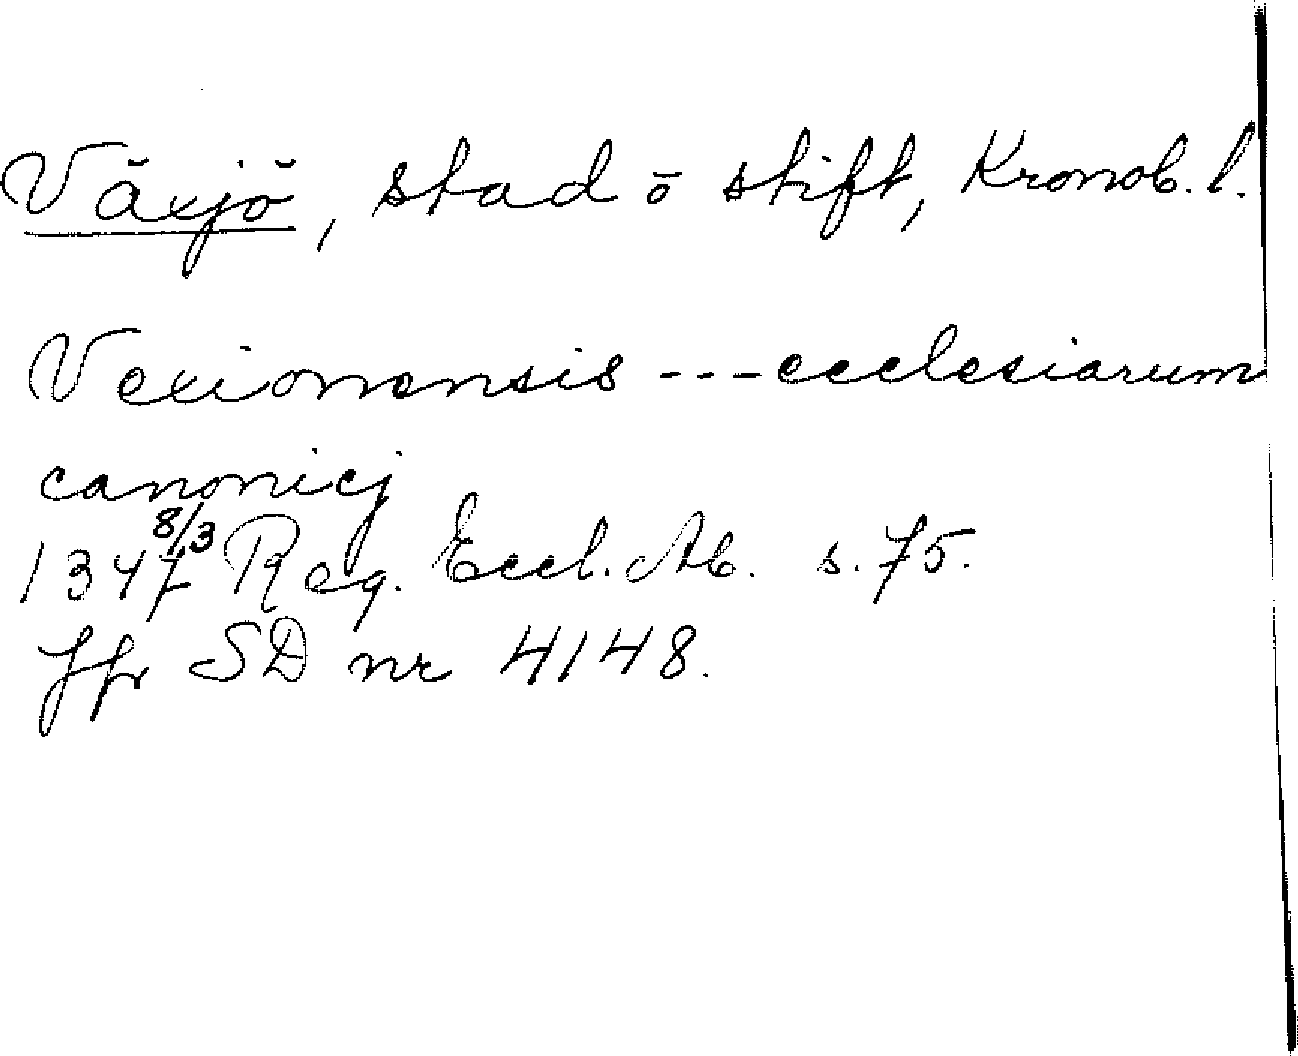 Växjö, stad ō stift, Kronob. l.
Vexionensis --- ecclesiarum
canonicj
1347 8/3 Reg. Eccl. Ab. s. 75.
Jfr SD nr 4148.